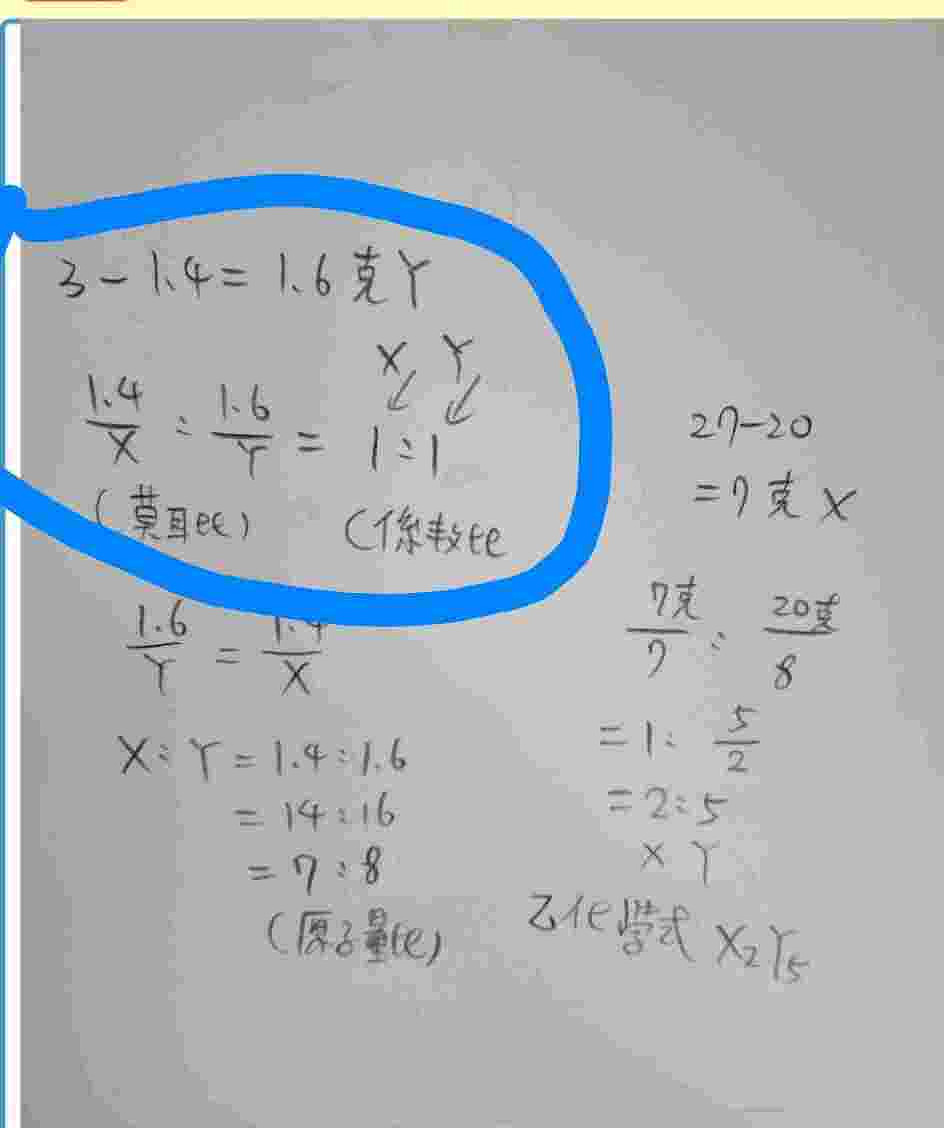 3 - 1.4 = 1.6克Y
X Y
1.4/X : 1.6/Y = 1:1
(莫耳比) (係數比
1.6/Y = 1.4/X
X:Y = 1.4:1.6
= 14:16
= 7:8
(原子量比)
27-20
=7克 X
7克/7 : 20克/8
=1: 5/2
=2:5
X Y
乙化學式 X₂Y₅